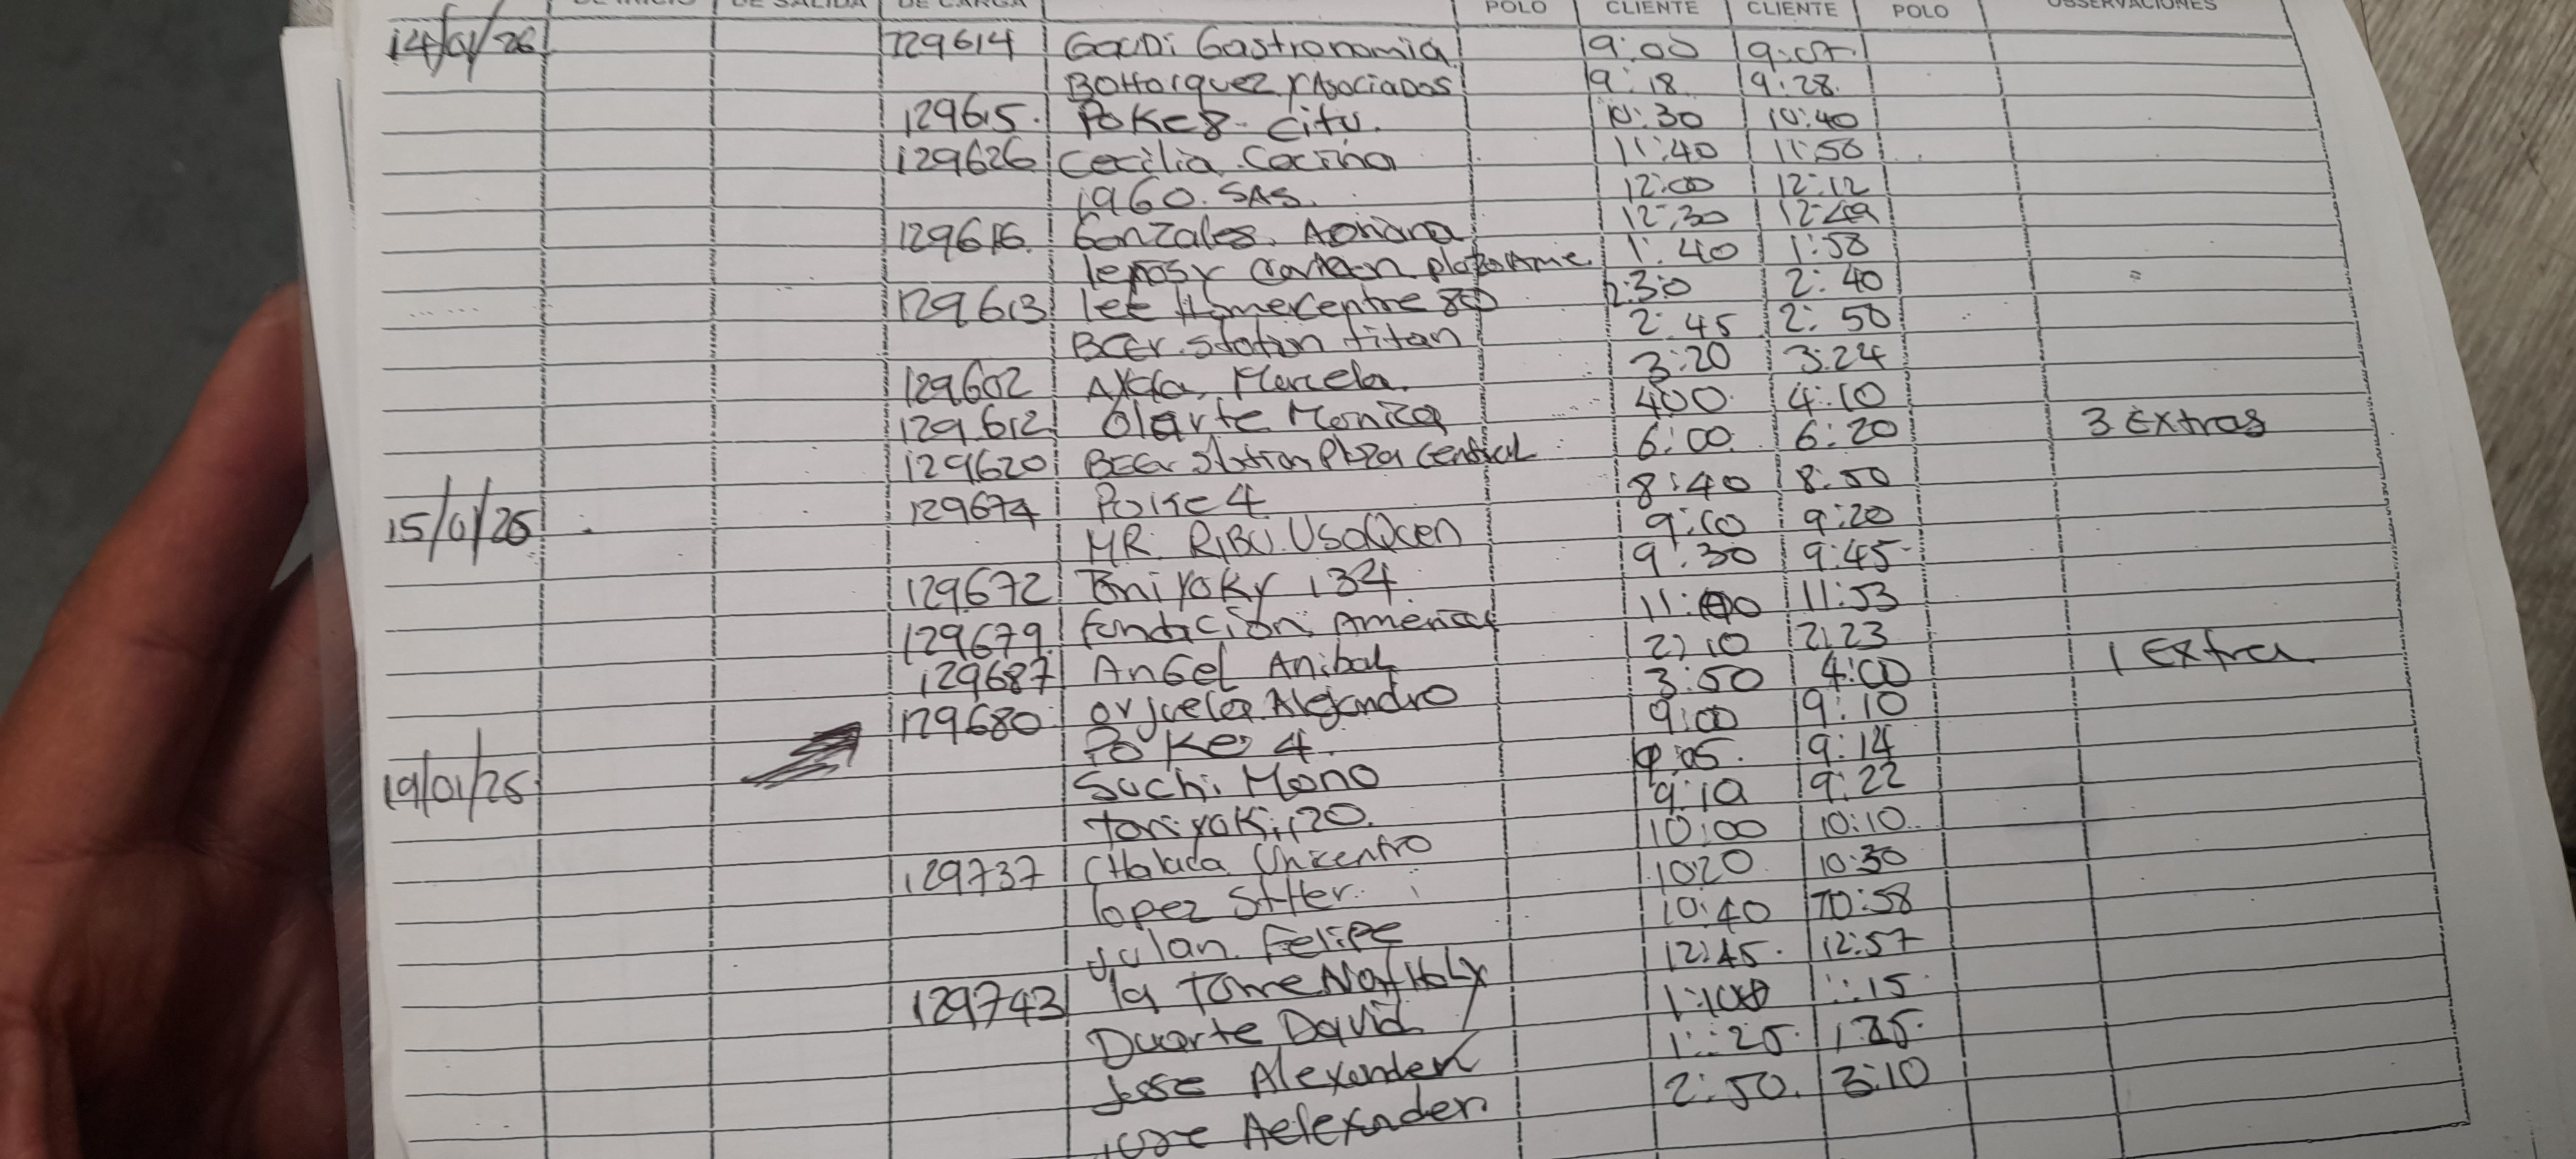 DE SALIDA DE CARGA POLO CLIENTE CLIENTE POLO OBSERVACIONES
14/01/26 129614 Gaudi Gastronomia 9:00 9:07
BOHorquez y Asociados 9:18 9:28
129615 Poke 8 city. 10:30 10:40
129626 Cecilia Cocina 11:40 11:50
1960. SAS. 12:00 12:12
129616 Gonzales Adriana 12:30 12:49
y 1:40 1:58
129613 lee Homecentre 80 2:30 2:40
BEEr station titan 2:45 2:50
129602 Marcela. 3:20 3:24
129612 Olarte Monica 400 4:10
129620 BEEr station Plaza Central 6:00 6:20 3 Extras
15/01/26 129674 Poke 4 8:40 8:50
MR. RIBU. UsaQuen 9:10 9:20
129672 134 9:30 9:45
129679 fundación America 11:53
129687 AnGel Anibal 2:10 2:23
129680 orjuela Alejandro 3:50 4:00 1 Extra
19/01/26 PoKe 4. 9:00 9:10
Suchi Mono 9:05 9:14
toriyoki 120. 9:10 9:22
129737 CHolada Unicentro 10:00 10:10
lopez 1020 10:30
Julan Felipe 10:40 10:58
129743 la Torre NatHaly 12:45 12:57
Duarte David 1:15
Jose Alexander 1:25
Aelexander 2:50 3:10